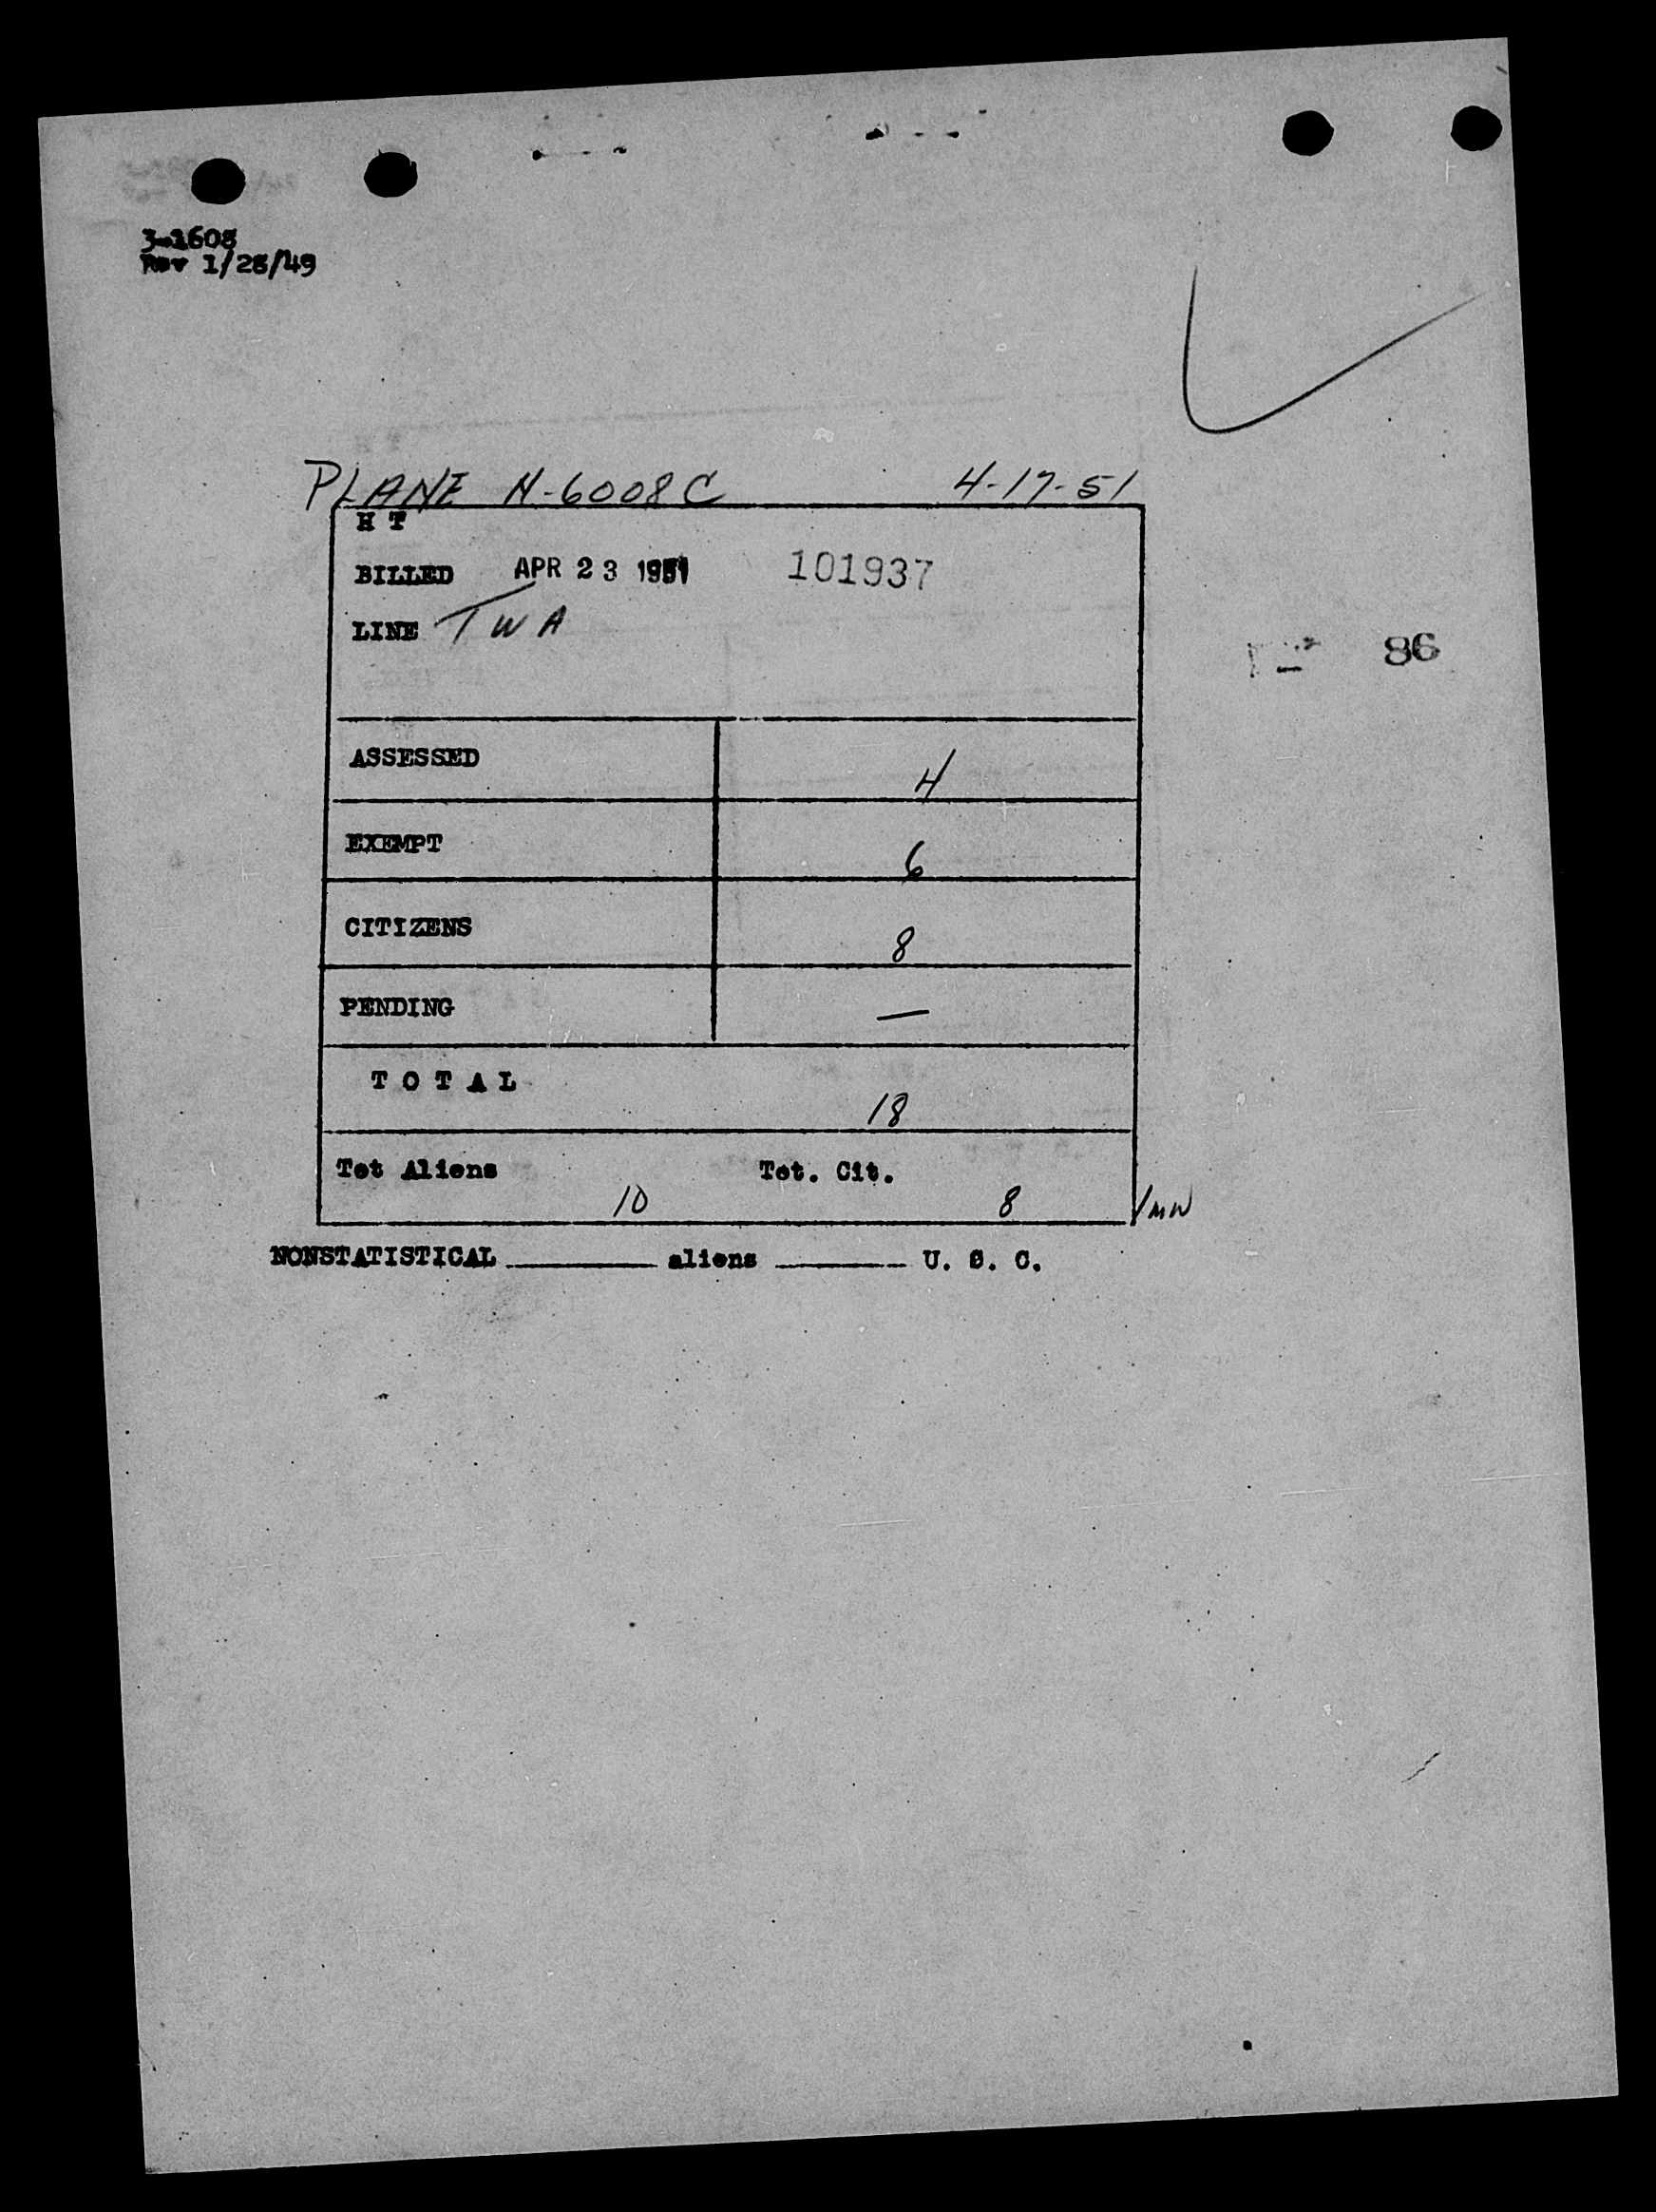 3-1608
Rev 1/28/49
PLANE N-6008C 4-17-51
H T
BILLED APR 23 1951 101937
LINE TWA
86
ASSESSED 4
EXEMPT 6
CITIZENS 8
PENDING —
T O T A L 18
Tot Aliens 10 Tot. Cit. 8 /MW
NONSTATISTICAL ________ aliens ________ U. S. C.